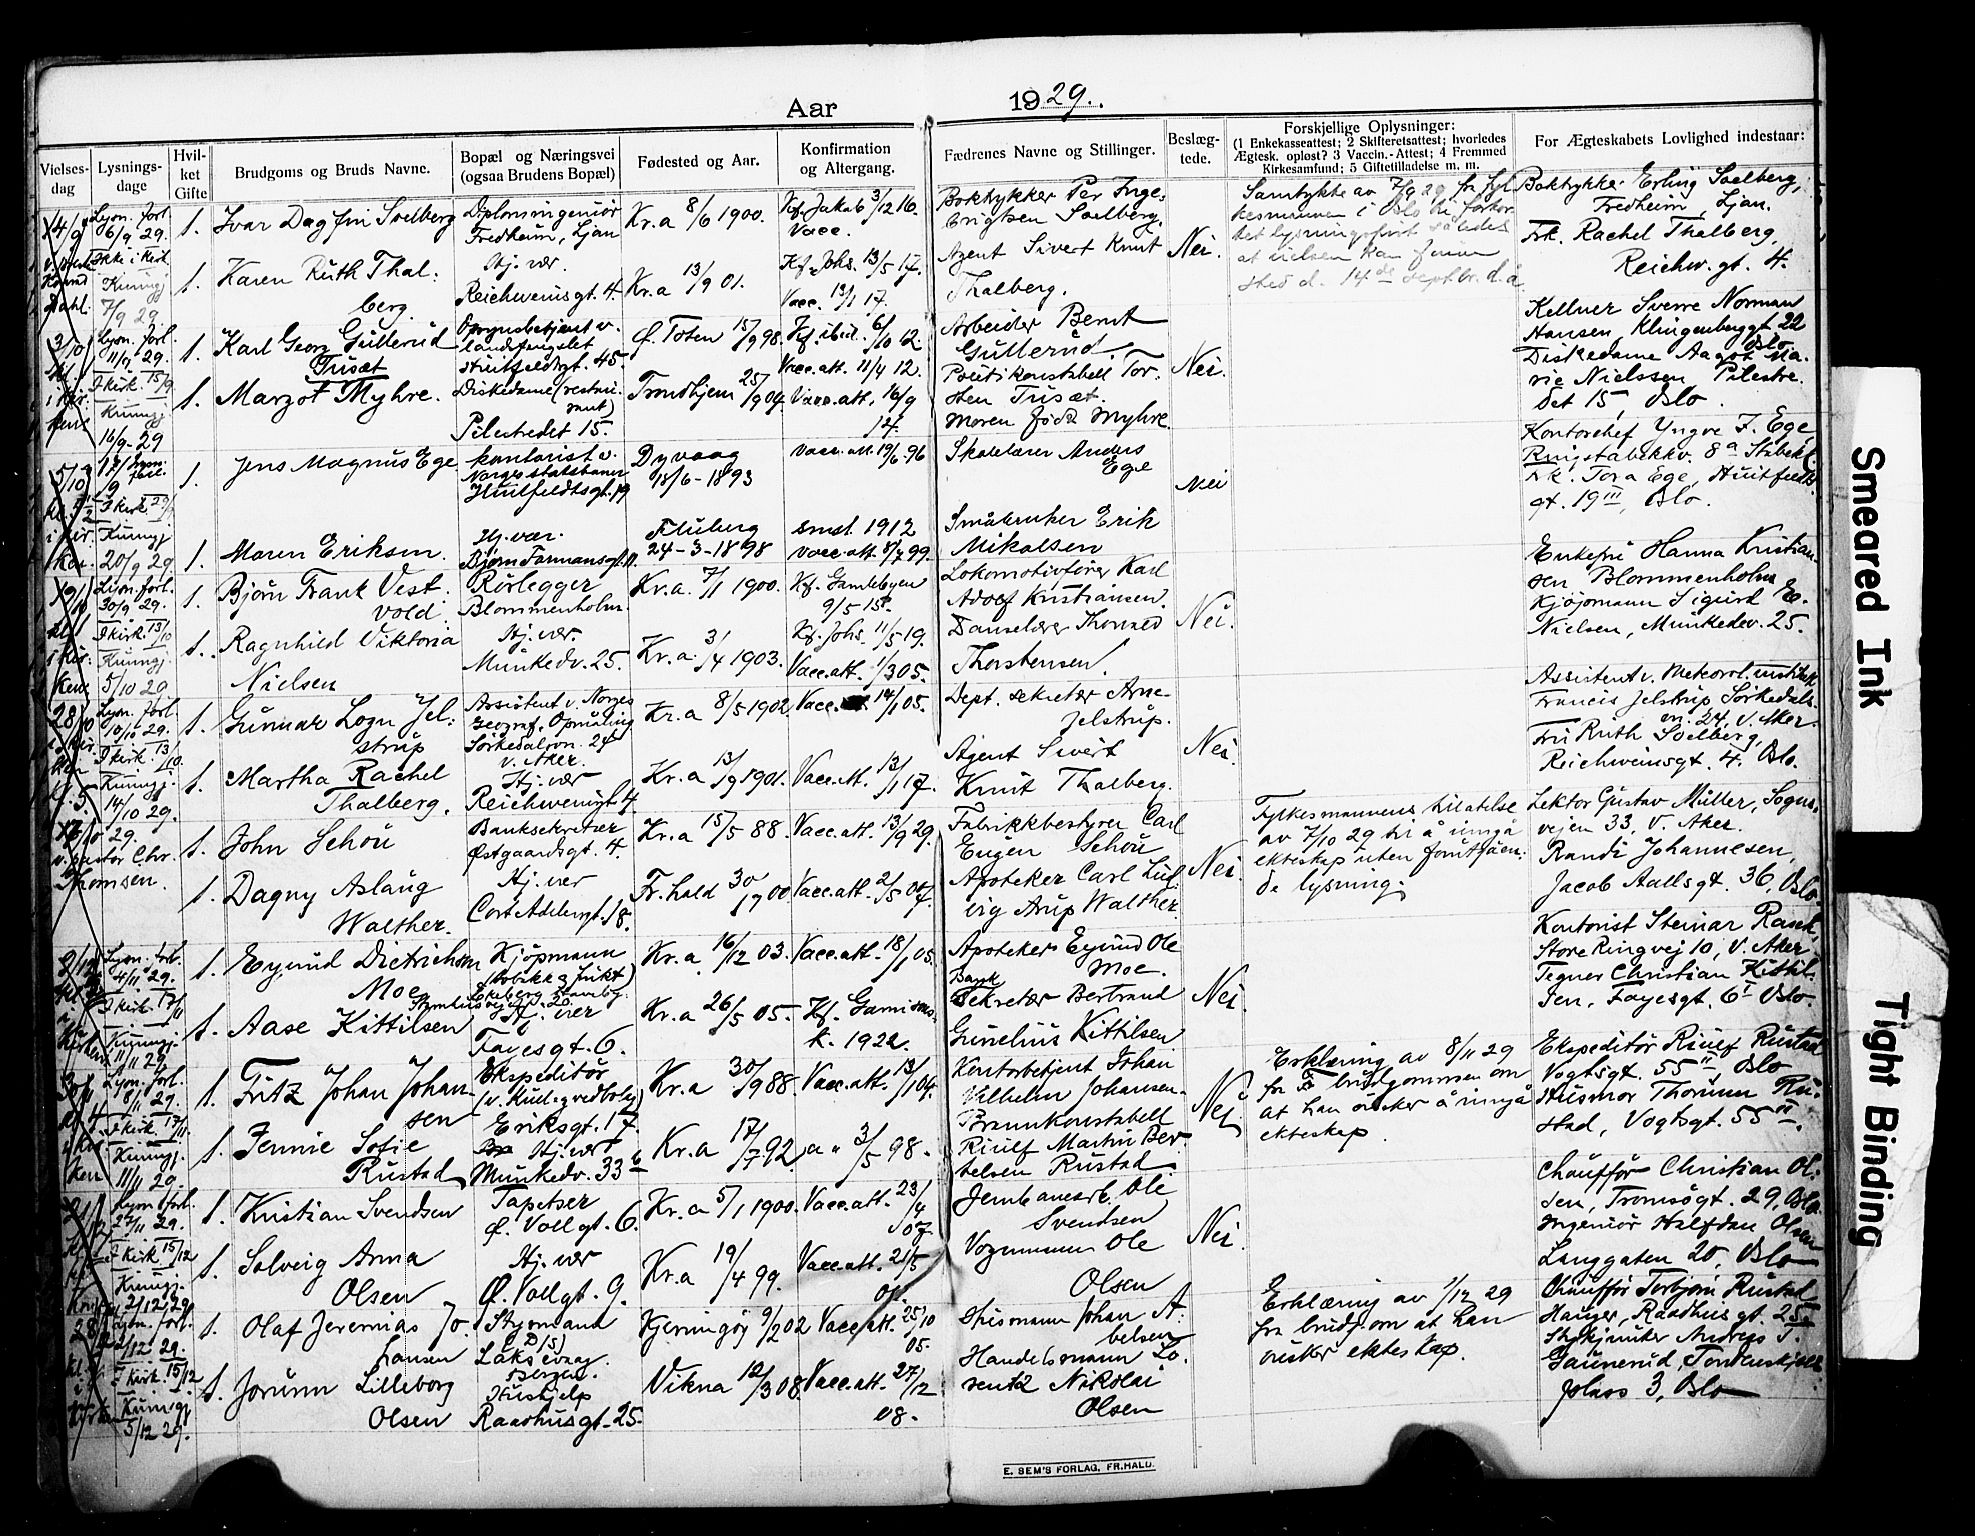 Aar 1929.
Vielses-dag
Lysnings-dage
Hvil-ket Gifte
Brudgoms og Bruds Navne.
Bopæl og Næringsvei (ogsaa Brudens Bopæl)
Fødested og Aar.
Konfirmation og Altergang.
Fædrenes Navne og Stillinger.
Beslæg-tede.
Forskjellige Oplysninger:
(1 Enkekasseattest; 2 Skifteretsattest; hvorledes
Ægtesk. opløst? 3 Vaccin.-Attest; 4 Fremmed
Kirkesamfund; 5 Giftetilladelse m. m.
For Ægteskabets Lovlighed indestaar:
14/9
Lysn. forl.
6/9 29.
1.
Ivar Dagfin Soelberg
Diplomingeniør
Fredheim, Ljan
Kr.a 8/6 1900.
Kf. Jakob 3/12 16.
Vacc.
Boktrykker Per Inge-
brigtsen Soelberg.
Nei.
Samtykke av 7/9 29 fra fyl
kesmannen i Oslo til forkor
tet lysningsfrist således
at vielsen kan finne
sted d. 14de septbr. d.å
Boktrykker Erling Soelberg,
Fredheim, Ljan.
Frk. Rachel Thalberg,
Reichw.gt. 4.
Kunngj.
7/9 29.
1.
Karen Ruth Thal-
berg.
Hj. vær.
Reichweinsgt. 4.
Kr.a 13/9 01.
Kf. Johs. 13/5 17.
Vacc. 13/1 17.
Agent Sivert Knut
Thalberg.
3/10
Lysn. forl.
11/9 29.
1.
Karl Georg Gullerud
Tusæt
Opsynsbetjent v.
landsfengslet
Huitfeldtsgt. 45.
Ø. Toten 15/9 98.
Kf. ibid. 6/10 12.
Vacc. att. 11/4 12.
Arbeider Bernt
Gullerud.
Politikonstabell Tor-
sten Tusæt.
Nei.
Kellner Sverre Norman
Hansen, Klingenberggt. 22
Oslo
Diskedame Aagot Ma-
rie Nielssen, Pilestre-
det 15, Oslo.
I kirk. 15/9
Kunngj.
16/9-29
1.
Margot Myhre.
Diskedame (restau-
rant)
Pilestredet 15.
Trondhjem 25/9 04.
Vacc. att. 16/9
14.
Moren født Myhre
5/10
1.
Jens Magnus Ege
kontorist v.
Norges statsbaner
Huitfeldtsgt. 19
Dyvaag
18/6-1893
Vacc. att. 19/6-96
Skolelærer Anders
Ege
Nei
Kontorchef Yngve F. Ege,
Ringstabekkv. 8a Stabekk
Frk. Tora Ege, Huitfeldts-
gt. 19 III, Oslo.
Kunngj.
20/9 29.
1.
Maren Eriksen.
Hj. vær.
Bjørn Farmansgt. 11.
Fluberg
24-3-1898
smst. 1912
vacc. att. 8/7 99.
Småbruker Erik
Mikalsen
19/10
Lysn. forl.
30/9 29.
1.
Bjørn Frank Vest-
vold.
Rørlegger
Blommenholm.
Kr.a. 7/1 1900.
Kf. Gamlebyen
9/5 15.
Lokomotivfører Karl
Adolf Kristiansen.
Nei.
Enkefru Hanna Kristian-
sen Blommenholm
Kjøpmann Sigurd E.
Nielsen, Munkedv. 25.
I kirk. 13/10
Kunngj.
5/10 29.
1.
Ragnhild Viktoria
Nielsen
Hj. vær.
Munkedv. 25.
Kr.a. 3/4 1903.
Kf. Johs. 11/5 19.
Vacc. att. 1/3 05.
Danselærer Thorvald
Thorstensen.
28/10
Lysn. forl.
10/10 29.
1.
Gunnar Logn Jel-
strup
Assistent v. Norges
Geograf. Opmåling
Sørkedalsvn. 24
v. Aker.
Kr.a 8/5 1902.
Vacc. 14/1 05.
Dept. sekretær Arne
Jelstrup.
Nei.
Assistent v. Meteorol. institutt
Francis Jelstrup Sørkedals-
vn. 24, V. Aker.
Fru Ruth Soelberg,
Reichweinsgt. 4. Oslo.
I kirk. 13/10.
Kunngj.
14/10 29.
1.
Martha Rachel
Thalberg.
Hj. vær
Reichweinsgt. 4
Kr.a 13/9 1901.
Vacc. att. 13/1 17.
Agent Sivert
Knut Thalberg.
v. pastor Chr.
Thomsen.
1.
John Schou
Banksekretær
Østgaardsgt. 4.
Kr.a 15/5 88.
Vacc. att. 13/9 29.
Fabrikkbestyrer Carl
Eugen Schou
Nei.
Fylkesmannens tillatelse
av 7/10 29 til å inngå
ekteskap uten forutgåen-
de lysning.
Lektor Gustav Müller, Sogns-
vejen 33, V. Aker.
Randi Johannesen,
Jacob Aallsgt. 36, Oslo
1.
Dagny Aslaug
Walther.
Hj. vær
Cort Adelersgt. 18.
Fr.hald 30/1 00
Vacc. att. 2/5 07.
Apoteker Carl Lud-
vig Arup Walther.
Lysn. forl.
4/11 29.
1.
Eyvind Dietrichson
Moe
Kjøpmann
(tobakk & frukt)
Kr.a 16/12 03.
Vacc. att. 18/1 05.
Apoteker Eyvind Ole
Moe.
Nei.
Kontorist Steinar Rask
Store Ringvej 10, V. Aker,
Tegner Christian Kittil-
sen, Fayesgt. 6I Oslo
I kirk. 17/11
Kunngj.
11/11 29.
1.
Aase Kittilsen
Hj. vær
Fayesgt. 6.
Kr.a 26/5 05.
Kf. Garnisons-
k. 1922.
Bank
Sekretær Bertrand
Gunelius Kittilsen
Lysn. forl.
8/11 29.
1.
Fritz Johan Johan-
sen
Ekspeditør
Eriksgt. 17.
Kr.a 30/9 88.
Vacc. att. 13/1 04.
Kontorbetjent Johan
Vilhelm Johansen.
Nei
Erklæring av 8/11 29
fra brudgommen om
at han ønsker å inngå
ekteskap.
Ekspeditør Riulf Rustad
Vogtsgt. 55 II Oslo
Husmor Thorunn Ru-
stad, Vogtsgt. 55 II.
I kirk. 17/11.
Kunngj.
11/11 29.
1.
Jennie Sofie
Rustad
Hj. vær
Munkedv. 33
Kr.a 17/7 92
a " 3/5 98.
Brannkonstabell
Riulf Martin Ber-
telsen Rustad
Lysn. forl.
27/11 29.
1.
Kristian Svendsen
Tapetser
Ø. Vollgt. 6.
Kr.a 5/1 1900.
Vacc. att. 23/4
07
Jernbanearb. Ole
Svendsen
Nei.
Chauffør Christian Ol-
sen, Tromsøgt. 29, Oslo.
Ingeniør Halfdan Olsen
Langgaten 20, Oslo
I kirk. 15/12
Kunngj.
2/12 29.
1.
Solveig Anna
Olsen
Hj. vær
Ø. Vollgt. 9.
Kr.a 19/4 99.
Vacc. att. 21/5
01.
Vognmann Ole
Olsen
28/12
Lysn. forl.
2/12 29.
1.
Olaf Jeremias Jo-
hansen
Styrmand
Laksevaag
Bergen.
Kjerringøy 9/2 02
Vacc. att. 25/10
05.
Husmann Johan A-
belsen
Erklæring av 1/12 29
fra brudg. om at han
ønsker ekteskap.
Chauffør Torbjørn Rustad
Hauger, Raadhusgt. 25
Gaunerud, Tordenskjolds
plass 3, Oslo
I kirk. 15/12
Kunngj.
5/12 29.
1.
Jorunn Lilleborg
Olsen
Hushjelp
Raadhusgt. 25.
Vikna 12/3 08.
Vacc. att. 27/12
08.
Handelsmann Lo-
rentz Nikolai
Olsen
E. SEM'S FORLAG, FR.HALD.
Smeared Ink
Tight Binding